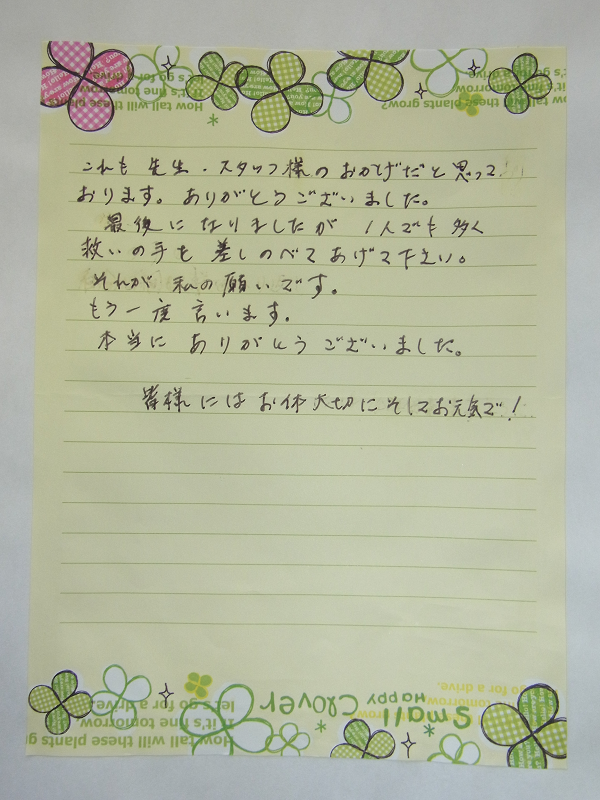 How tall will these plants grow?
If it's fine tomorrow
let's go for a drive.
これも 先生・スタッフ様のおかげだと思って
おります。ありがとうございました。
最後になりましたが 1人でも多く
救いの手を差しのべてあげて下さい。
それが 私の願いです。
もう一度言います。
本当に ありがとうございました。
皆様にはお体大切にそしてお元気で!
Small
HAPPY Clover
let's go for a drive.
If it's fine tomorrow
How tall will these plants